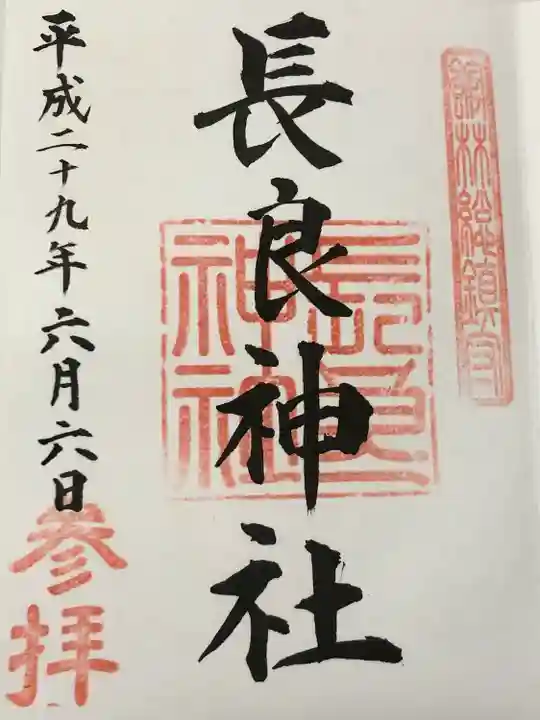 館林総鎮守
長良神社
長良
神社
平成二十九年六月六日
参拝